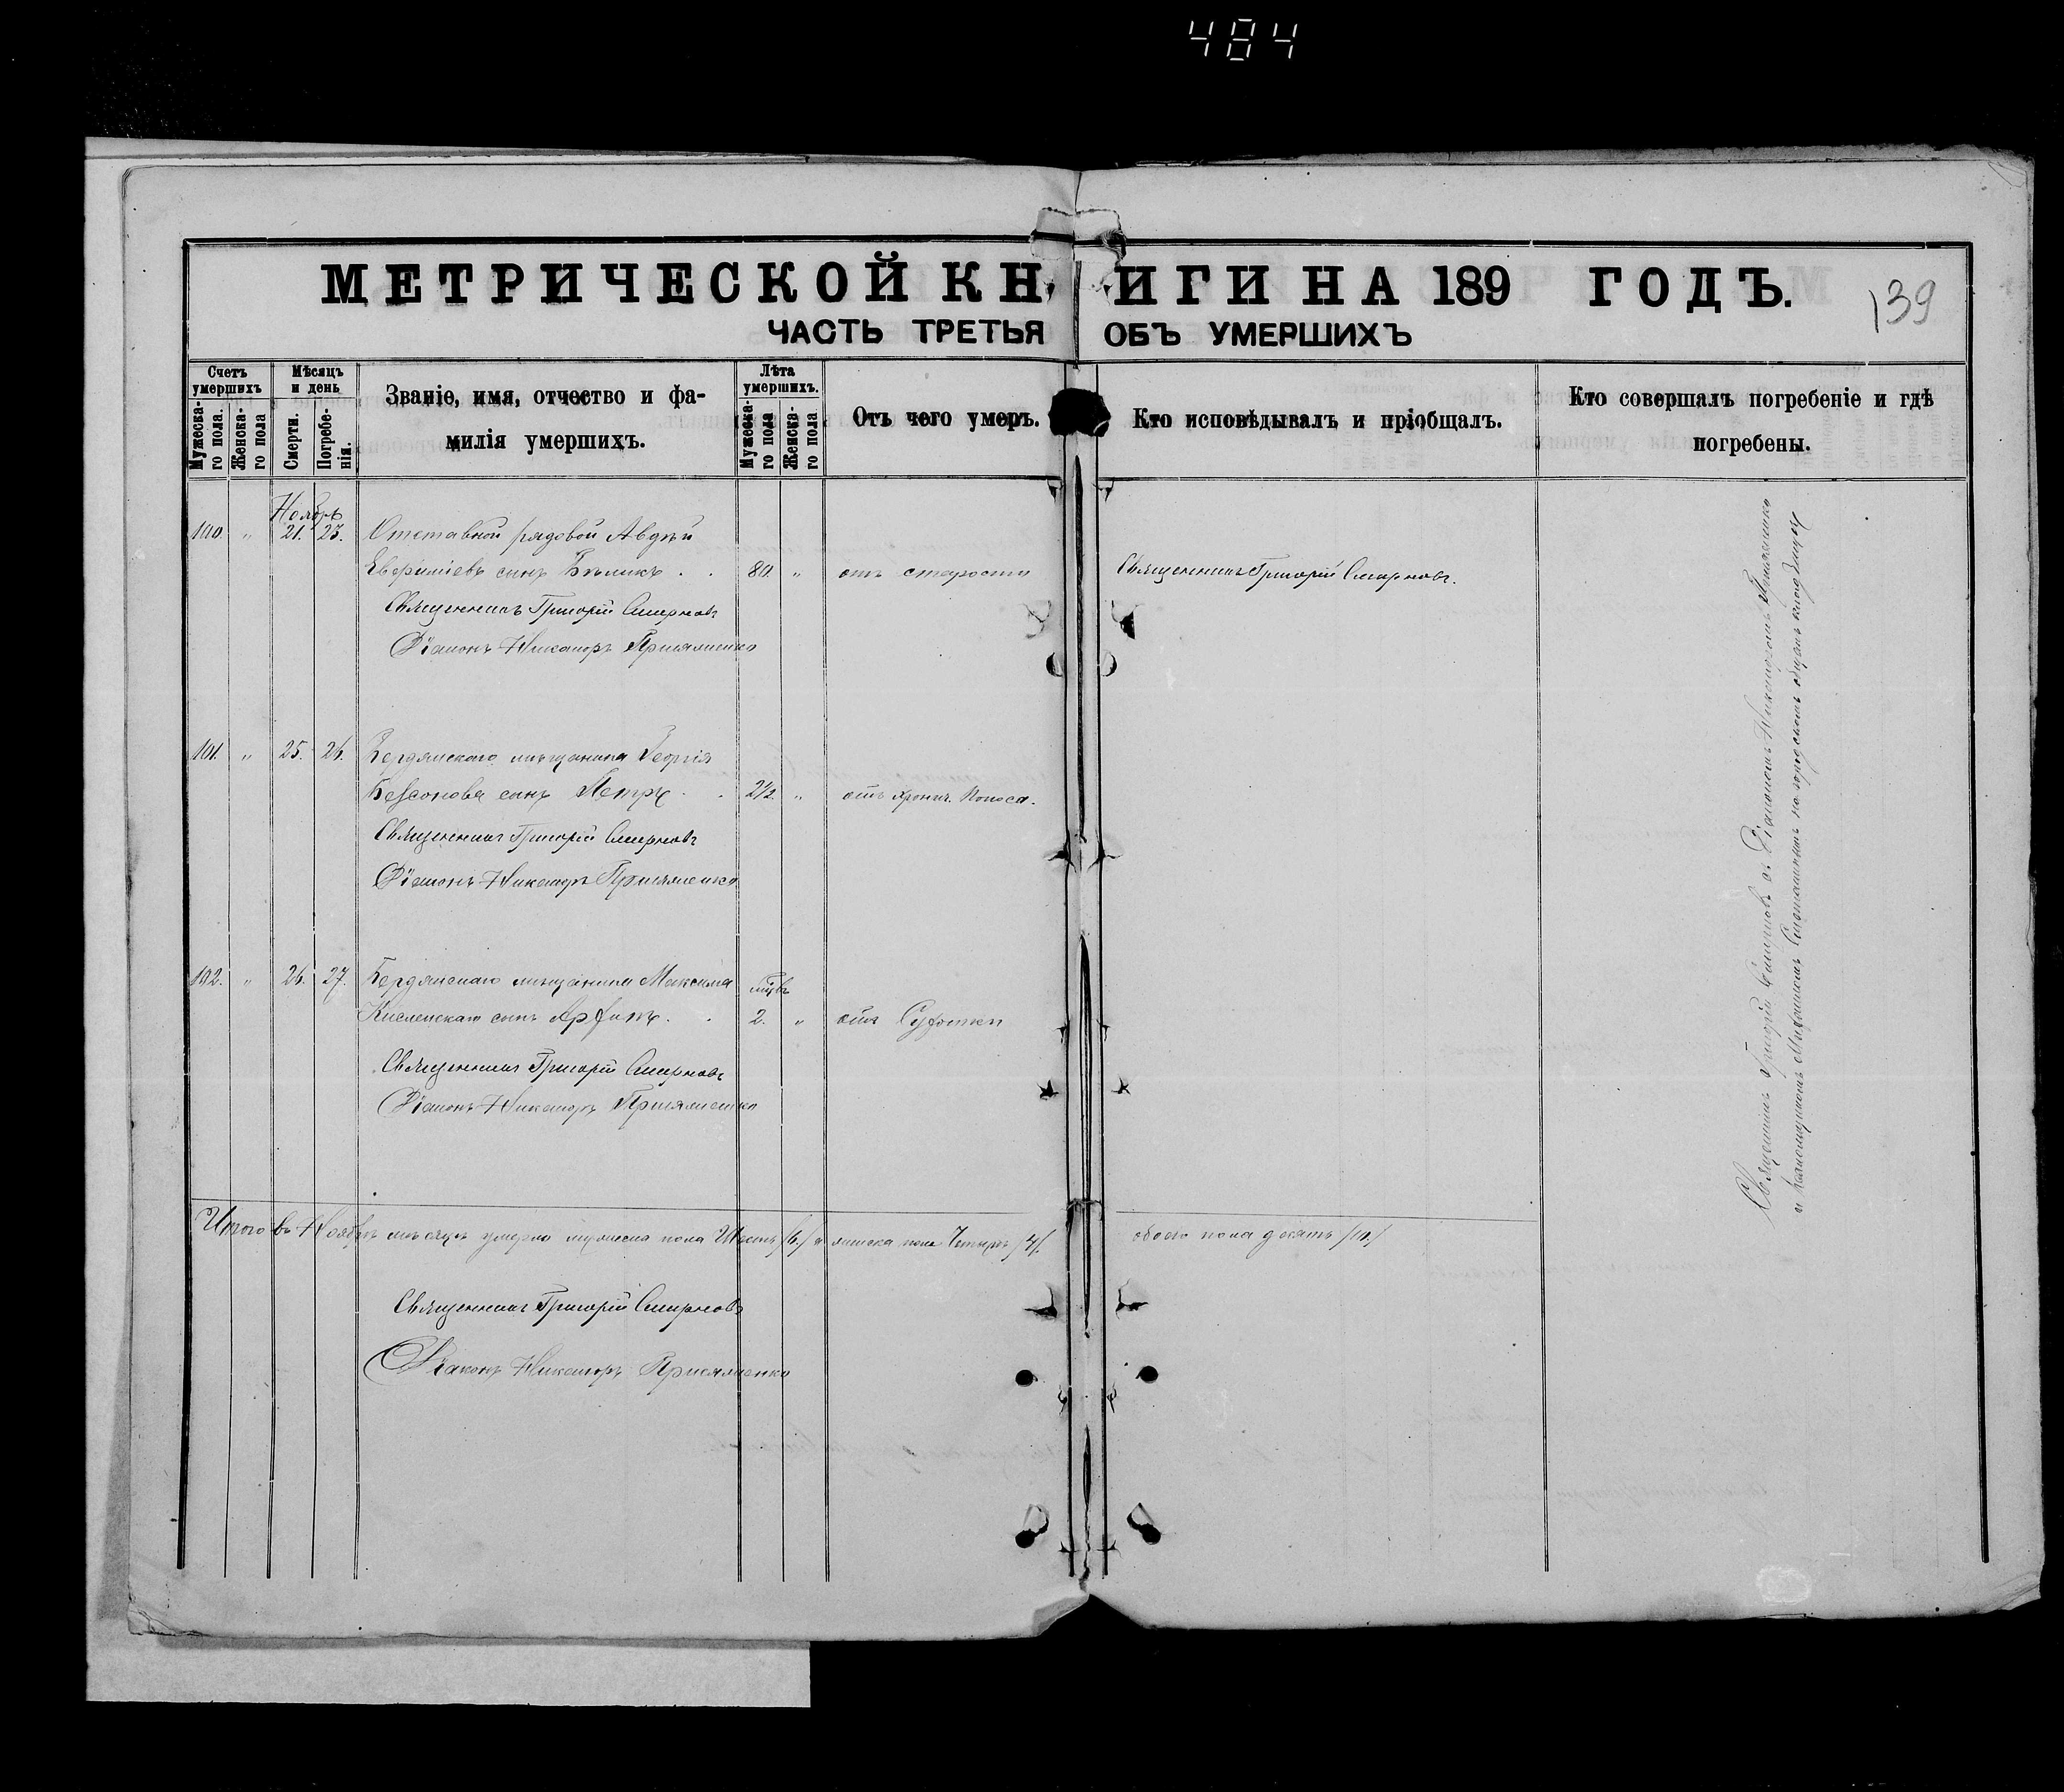 484
МЕТРИЧЕСКОЙ КНИГИ НА 189 ГОДЪ.
139
ЧАСТЬ ТРЕТЬЯ ОБЪ УМЕРШИХЪ
Счетъ умершихъ
Мужеска-го пола.
Женска-го пола
Мѣсяцъ и день
Смерти.
Погребе-нія.
Званіе, имя, отчество и фа-
милія умершихъ.
Лѣта умершихъ.
Мужеска-го пола
Женска-го пола
Отъ чего умеръ.
Кто исповѣдывалъ и пріобщалъ.
Кто совершалъ погребеніе и гдѣ
погребены.
Ноябрь
100. " 21. 23. Отставной рядовой Авдѣй
сынъ Бѣликъ . . 80. " отъ старости Священникъ Григорій Смирновъ.
Священникъ Григорій Смирновъ
Діаконъ Никаноръ Присяженко
101. " 25. 26. Бердянскаго мѣщанина Георгія
Безсонова сынъ Петръ . . 2½ " отъ хронич. поноса.
Священникъ Григорій Смирновъ
Діаконъ Никаноръ Присяженко
102. " 26. 27. Бердянскаго мѣщанина Максима
сынъ . . 2. " отъ
Священникъ Григорій Смирновъ
Діаконъ Никаноръ Присяженко
Итого въ Ноябрѣ мѣсяцѣ умерло мужеска пола Шесть /6./ и женска пола Четыре /4/. обоего пола десять /10./
Священникъ Григорій Смирновъ
Діаконъ Никаноръ Присяженко
Священникъ Григорій Смирновъ съ Діакономъ Никаноромъ Присяженко
и на городскомъ общемъ кладбищѣ